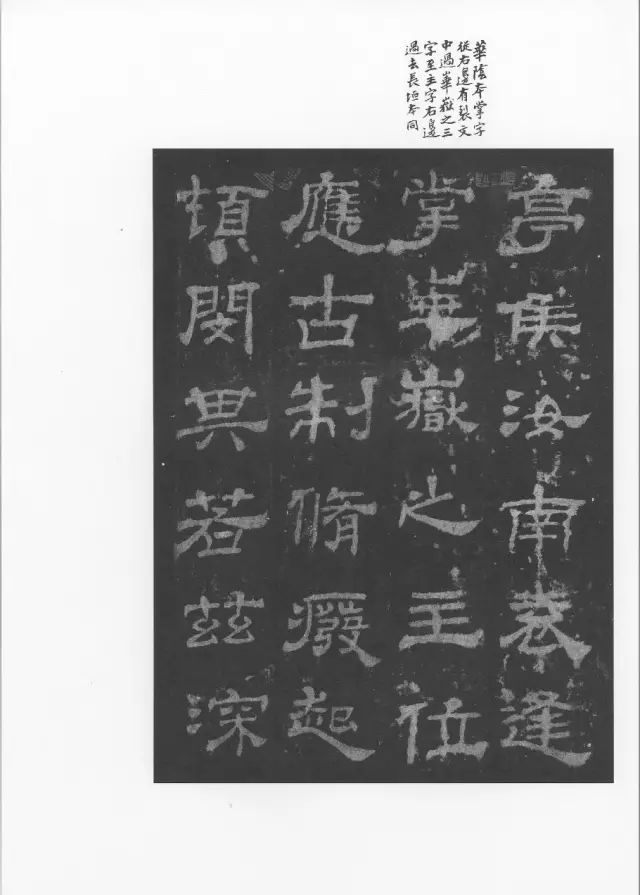 華陰本掌字
從右邊有裂文
中過華嶽之三
字至主字右邊
過去長垣本同
亭侯汝南袁逢
掌華嶽之主位
應古制脩癈起
頓閔其若茲深